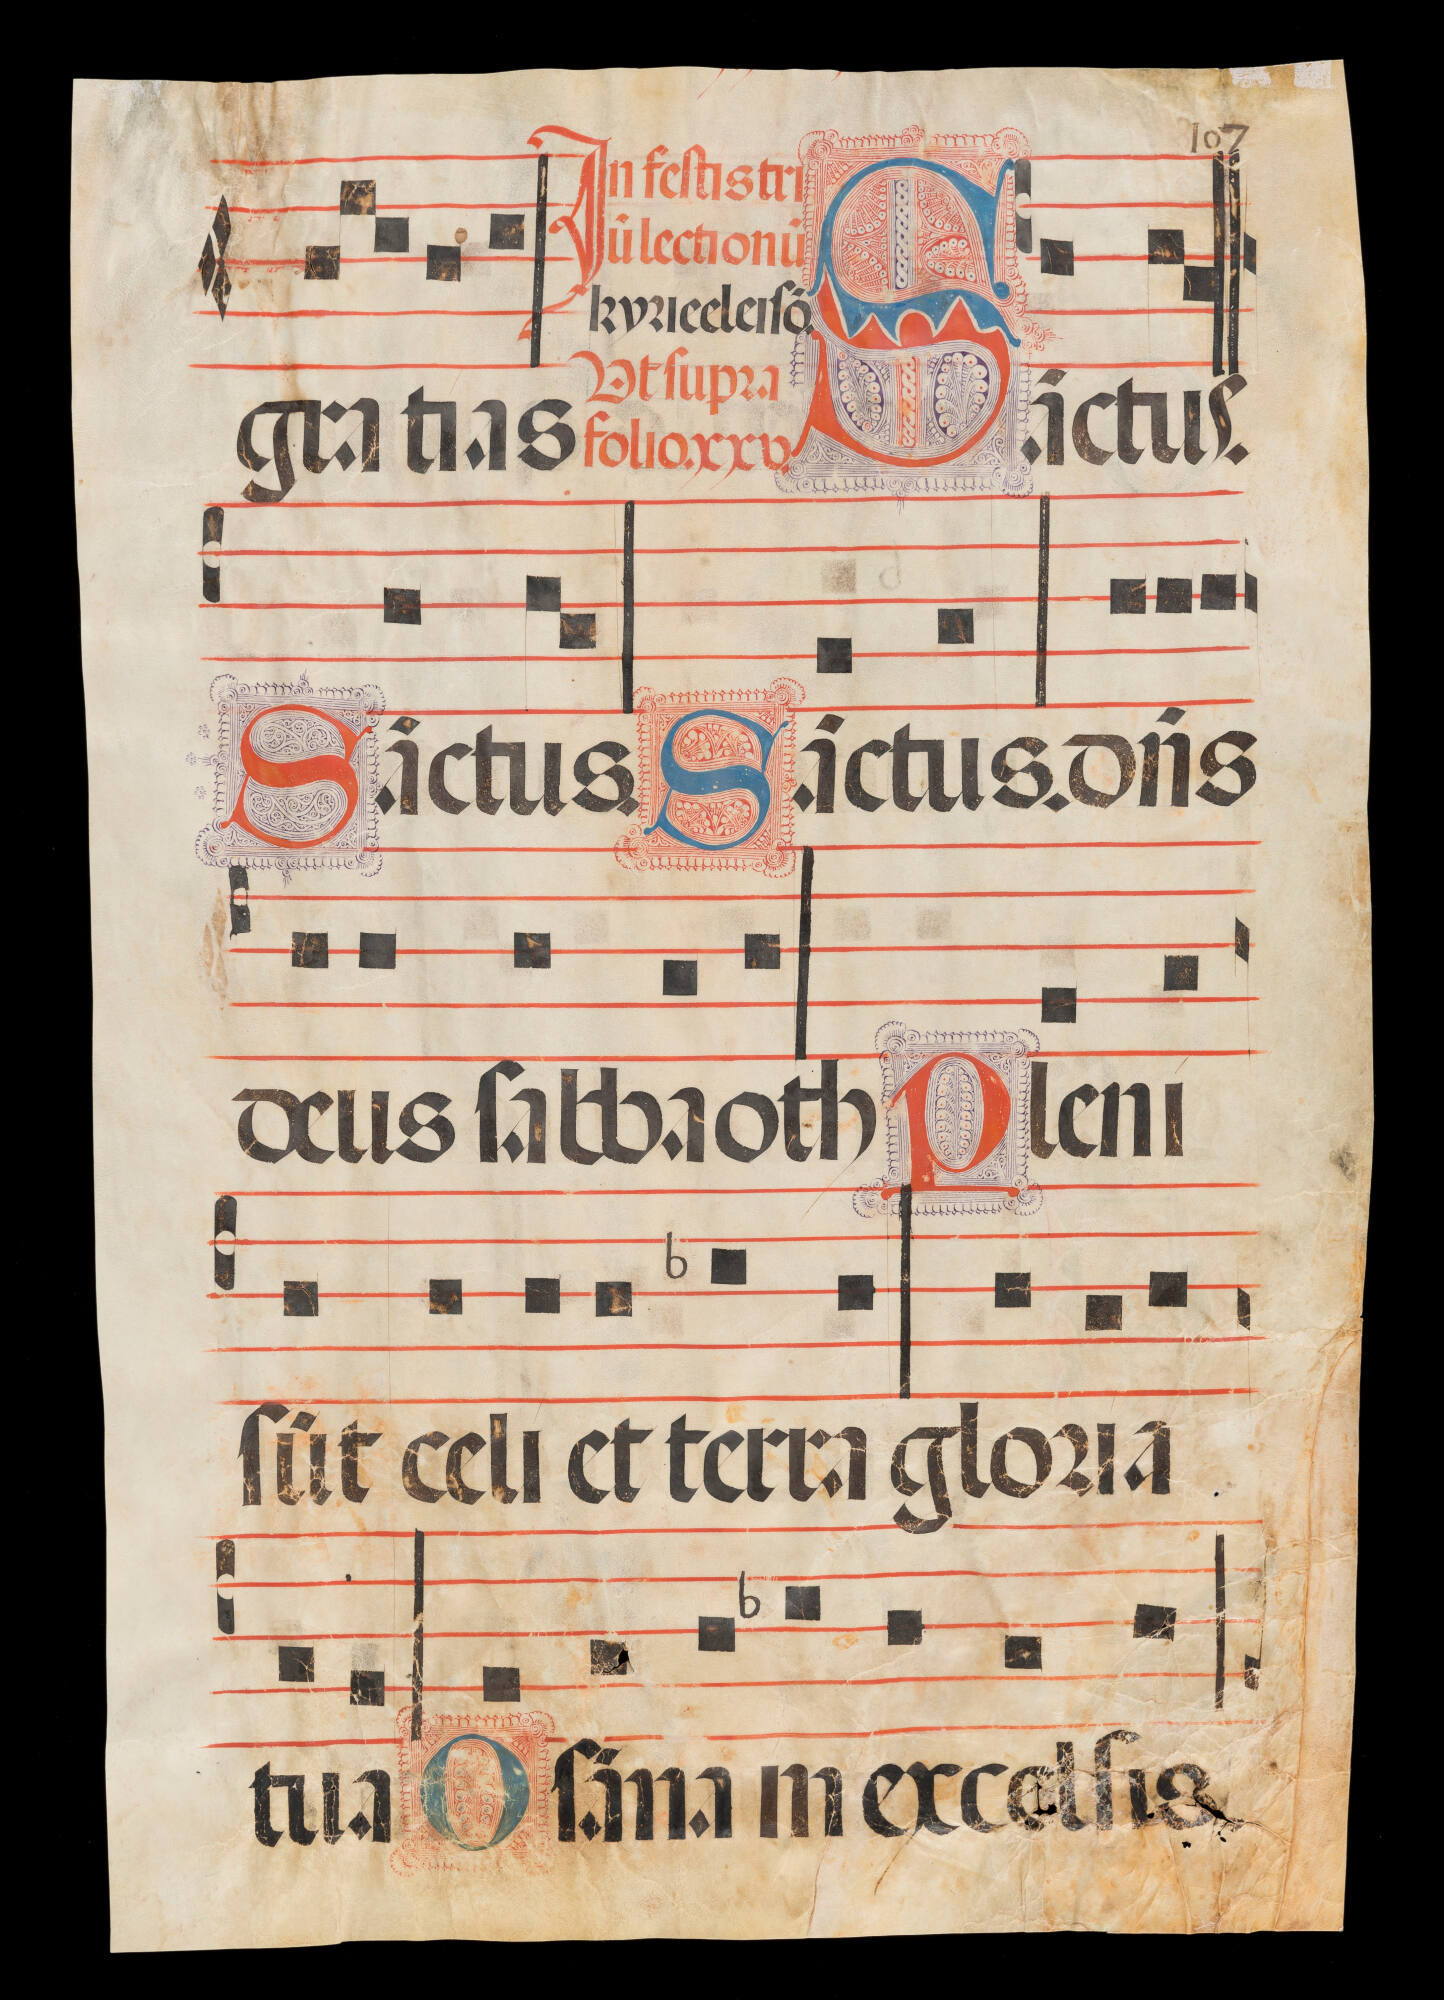 107
In festis tri
ũ lectionũ
kyrieeleisõ.
Vt supra
folio.xxv.
gratias Sãctus.
Sãctus. Sãctus. dñs
deus sabbaoth Pleni
sũt celi et terra gloria
tua Osãna in excelsis.
b
b